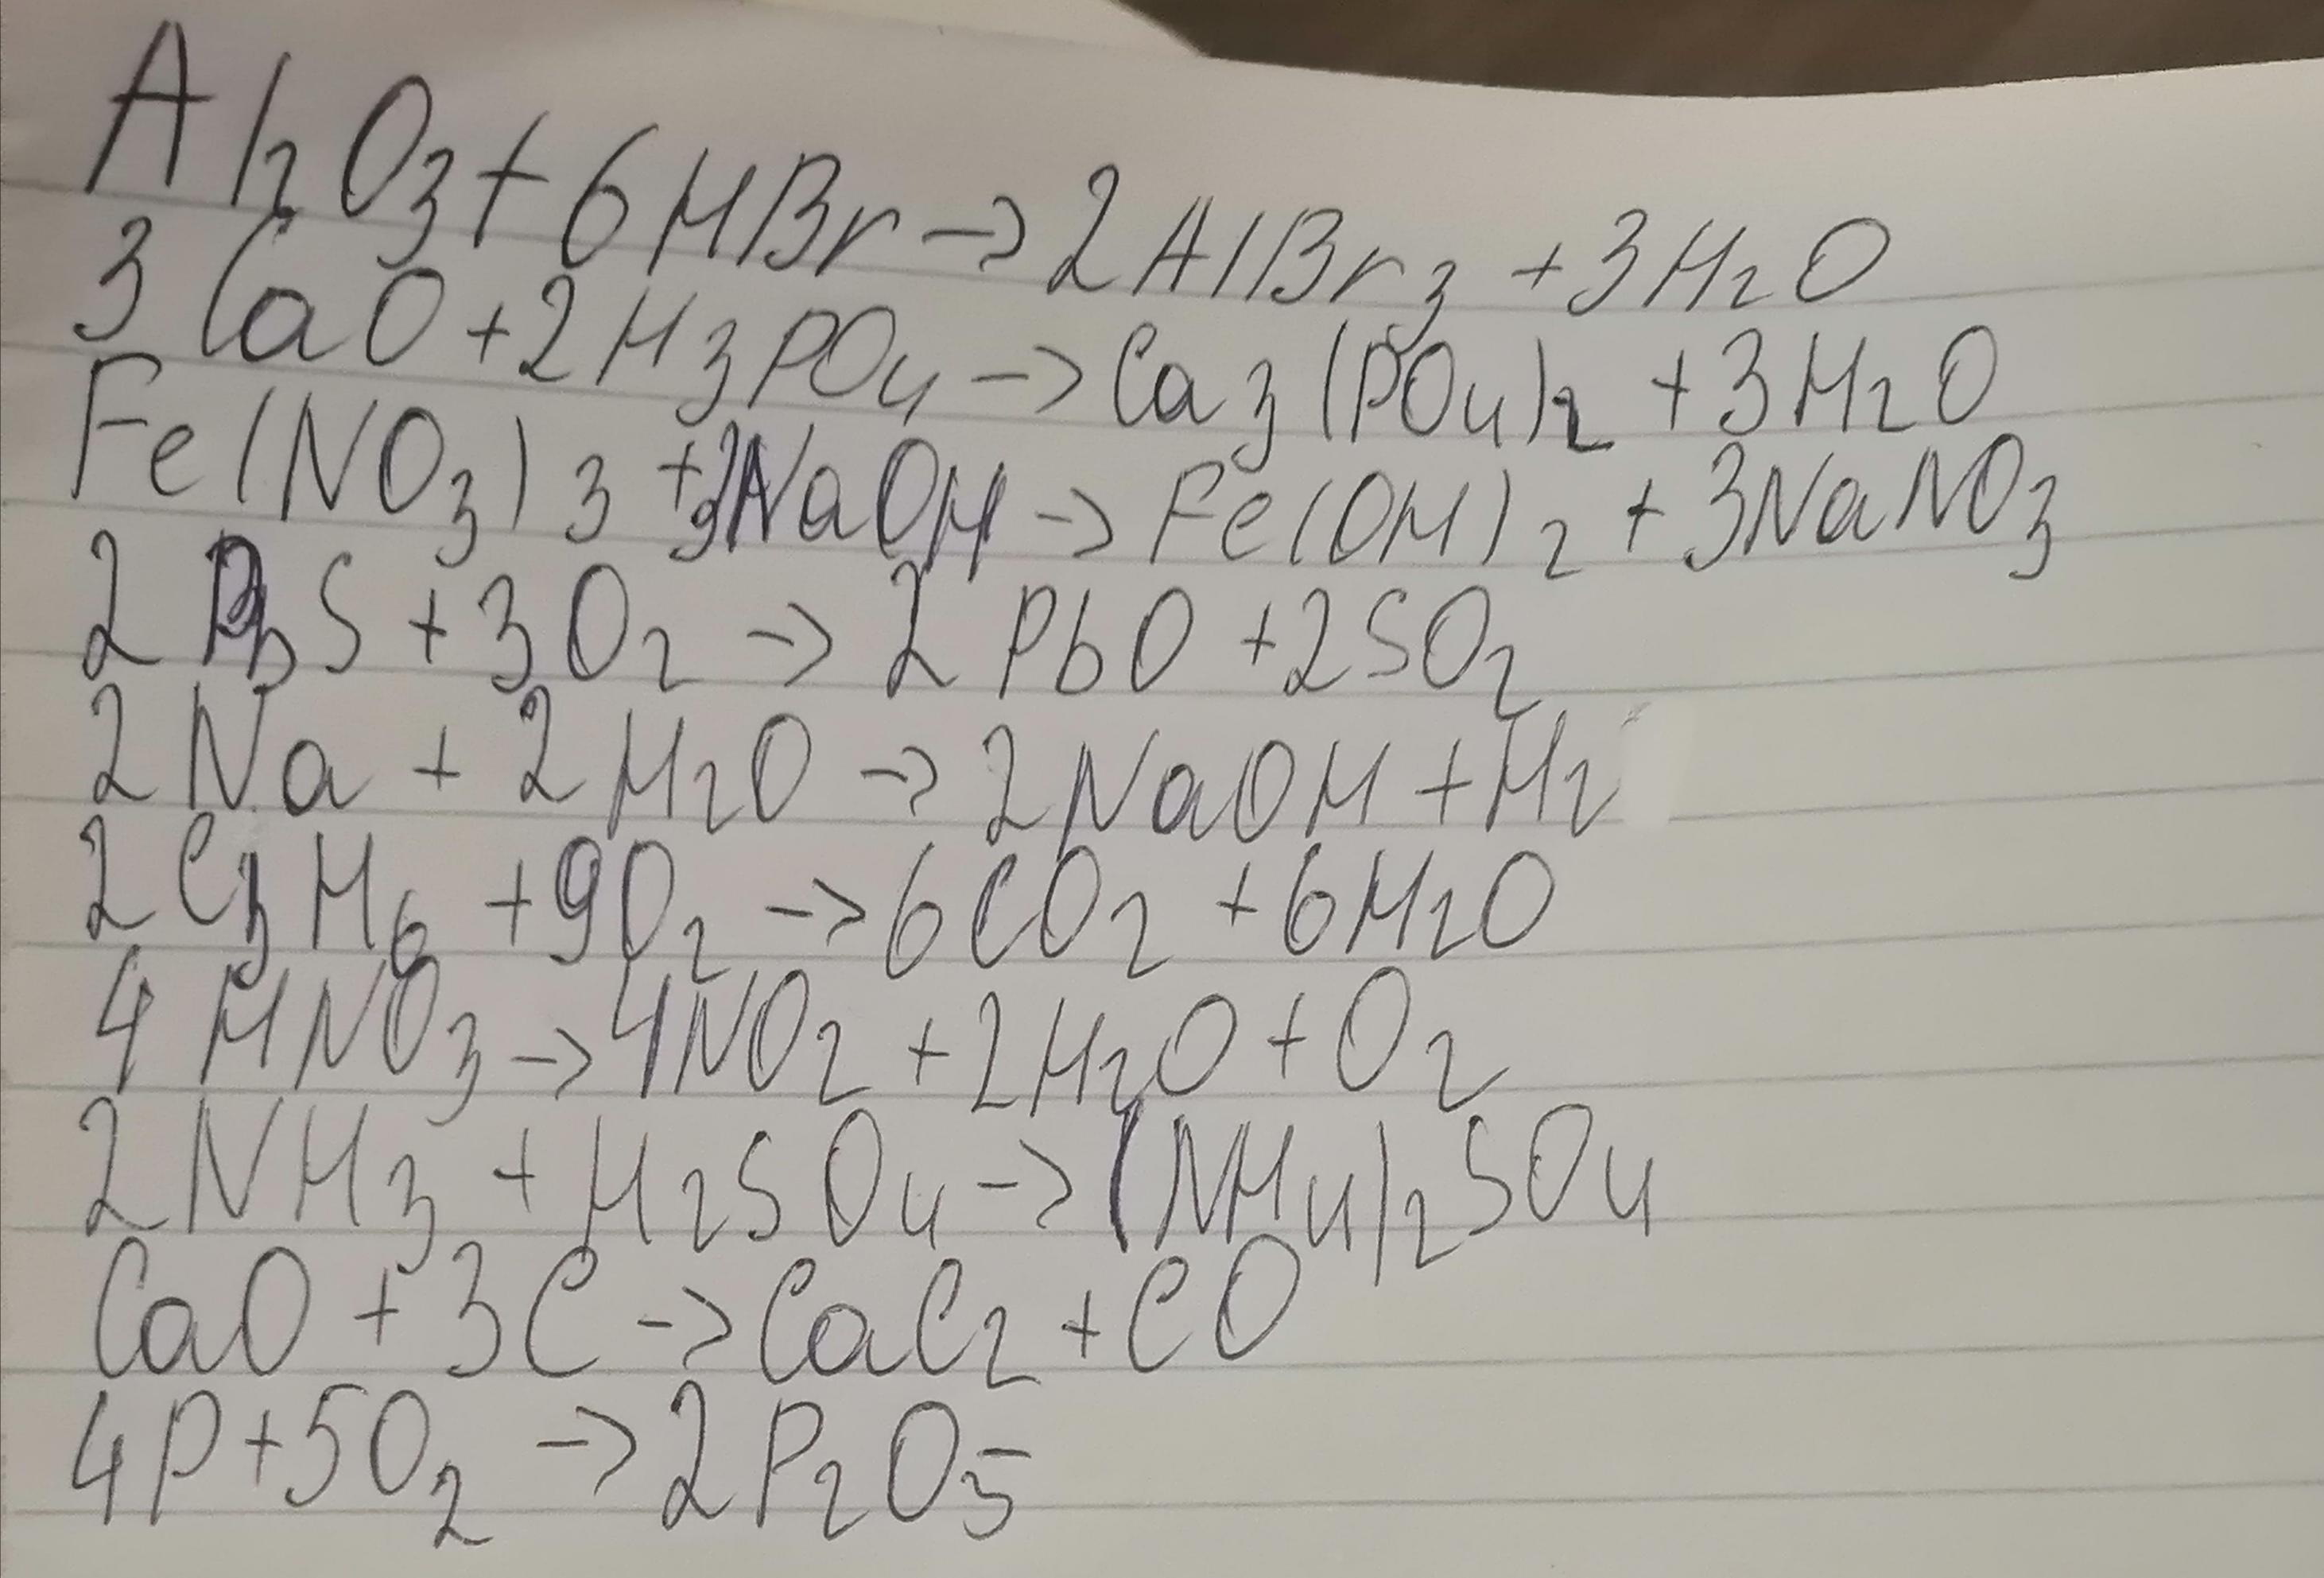 Al₂O₃ + 6HBr → 2AlBr₃ + 3H₂O
3CaO + 2H₃PO₄ → Ca₃(PO₄)₂ + 3H₂O
Fe(NO₃)₃ + 3NaOH → Fe(OH)₂ + 3NaNO₃
2PbS + 3O₂ → 2PbO + 2SO₂
2Na + 2H₂O → 2NaOH + H₂
2C₃H₆ + 9O₂ → 6CO₂ + 6H₂O
4HNO₃ → 4NO₂ + 2H₂O + O₂
2NH₃ + H₂SO₄ → (NH₄)₂SO₄
CaO + 3C → CaC₂ + CO
4P + 5O₂ → 2P₂O₅